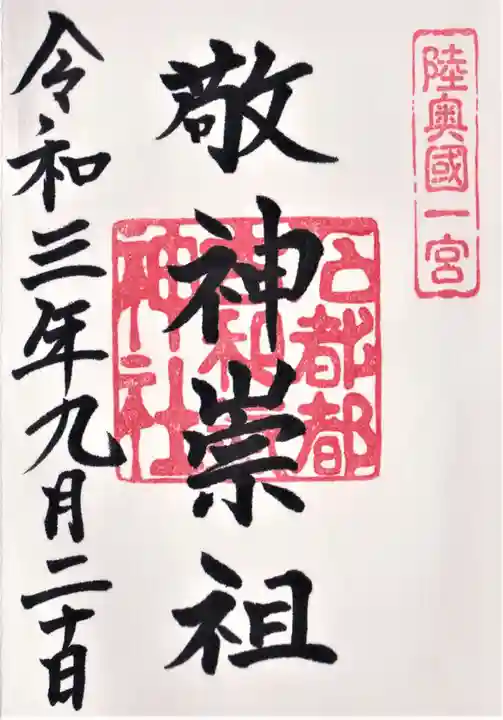 陸奥國一宮
敬神崇祖
石都都
神社
令和三年九月二十日